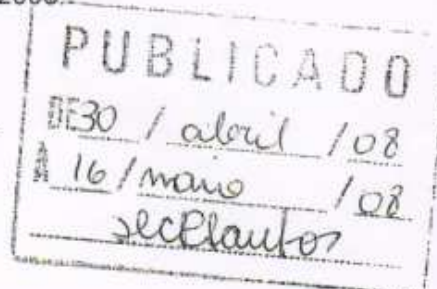 PUBLICADO
DE 30 / abril / 08
16 / maio / 08